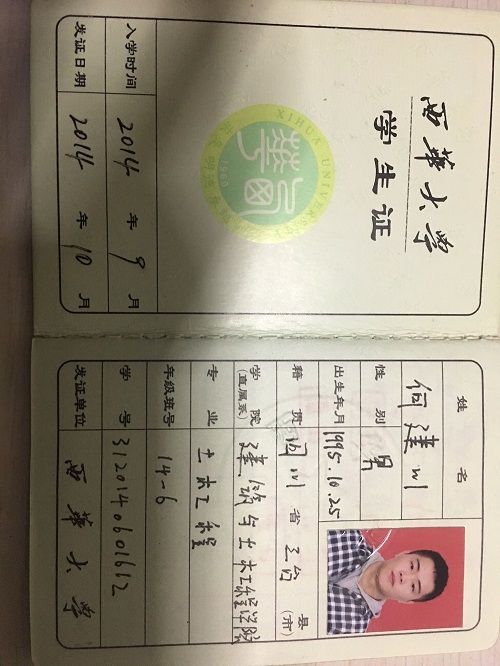 西华大学
学生证
XIHUA UNIVERSITY
1960
入学时间 2014 年 9 月
发证日期 2014 年 10 月
姓名 何建川
性别 男
出生年月 1995.10.25
籍贯 四川 省 三台 县(市)
学院(直属系) 建筑与土木工程学院
专业 土木工程
年级班号 14-6
学号 3120140601612
发证单位 西华大学